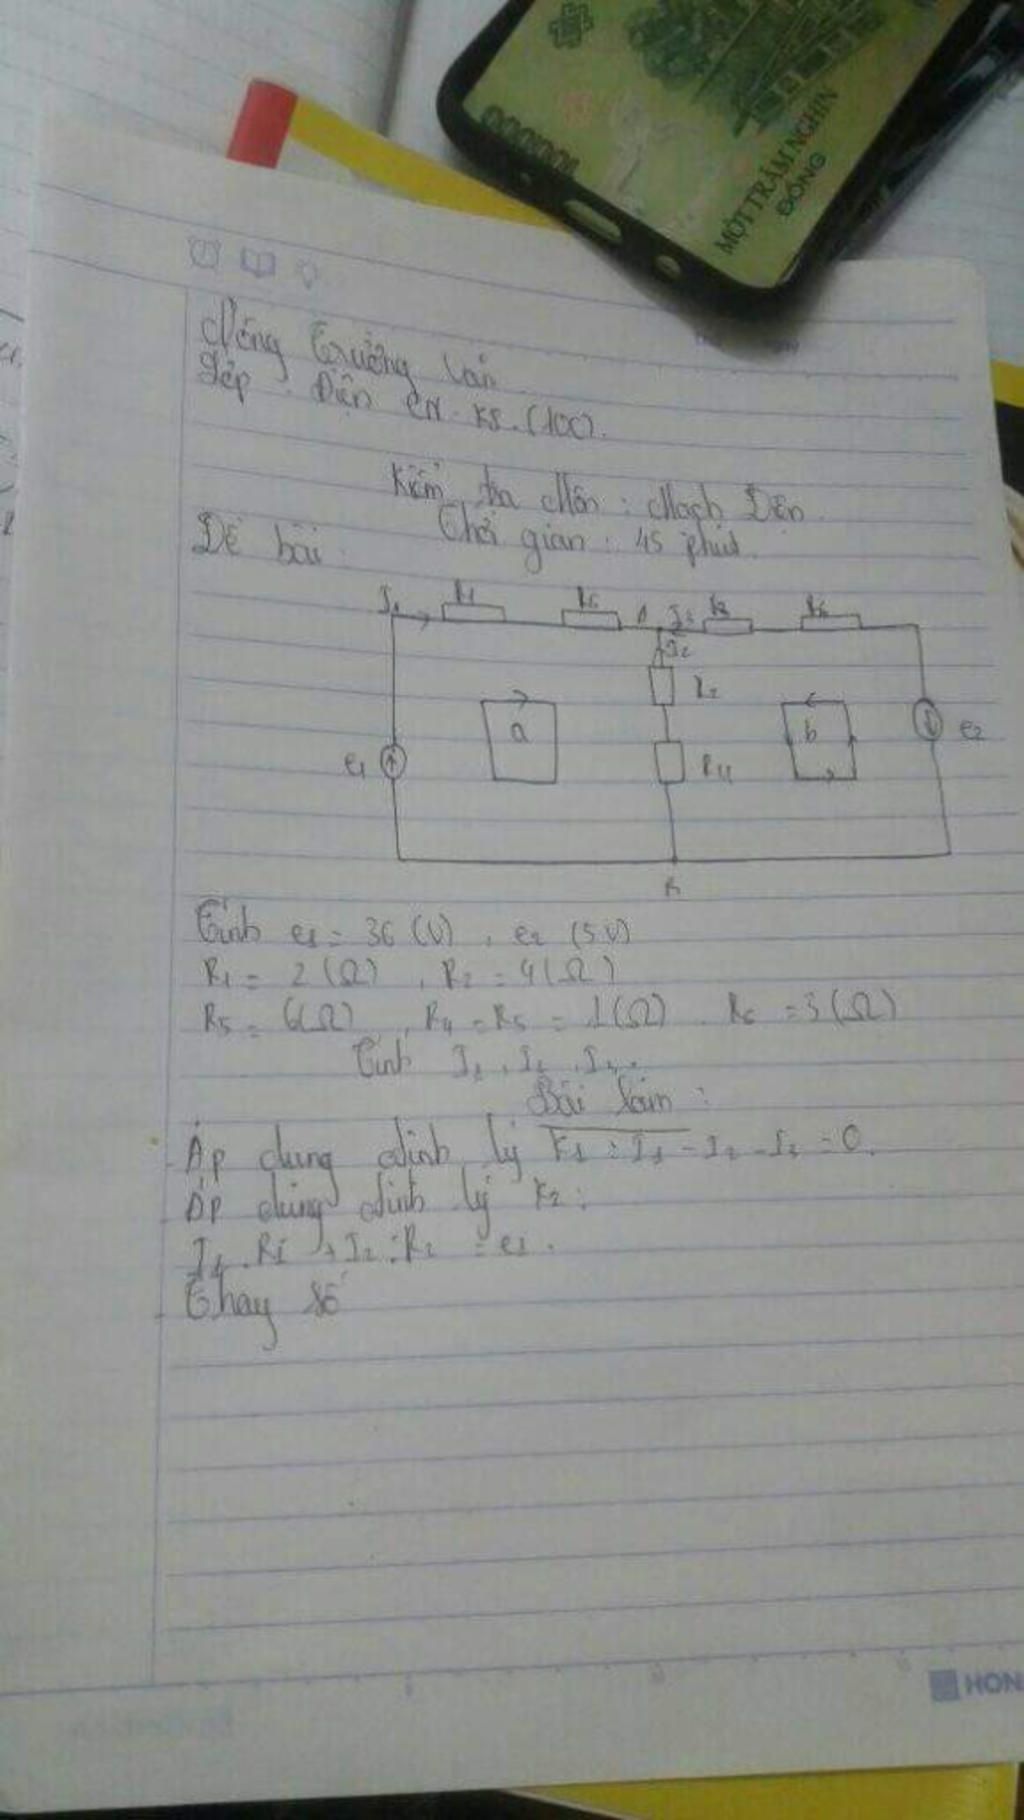 000001
MỘT TRĂM NGHÌN
ĐỒNG
Trường
Điện CN K8. (100).
Kiểm tra Môn : Mạch Điện
Thời gian : 45 phút.
Đề bài
I1 R1 R5 A I3 R3 R6
I2
R2
a
b
e1
e2
R4
B
Tính e1 = 36 (V) , e2 (5V)
R1 = 2 (Ω) , R2 = 4 (Ω)
6(Ω) , R4 = R5 = 1(Ω) . R6 = 3 (Ω)
Tính I1 , I2 , I3.
Bài làm :
Áp dụng định lý K1 : I1 - I2 - I3 = 0.
Áp dụng định lý K2 :
I1 . R1 + I2 . R2 = e1 .
Thay số
HON